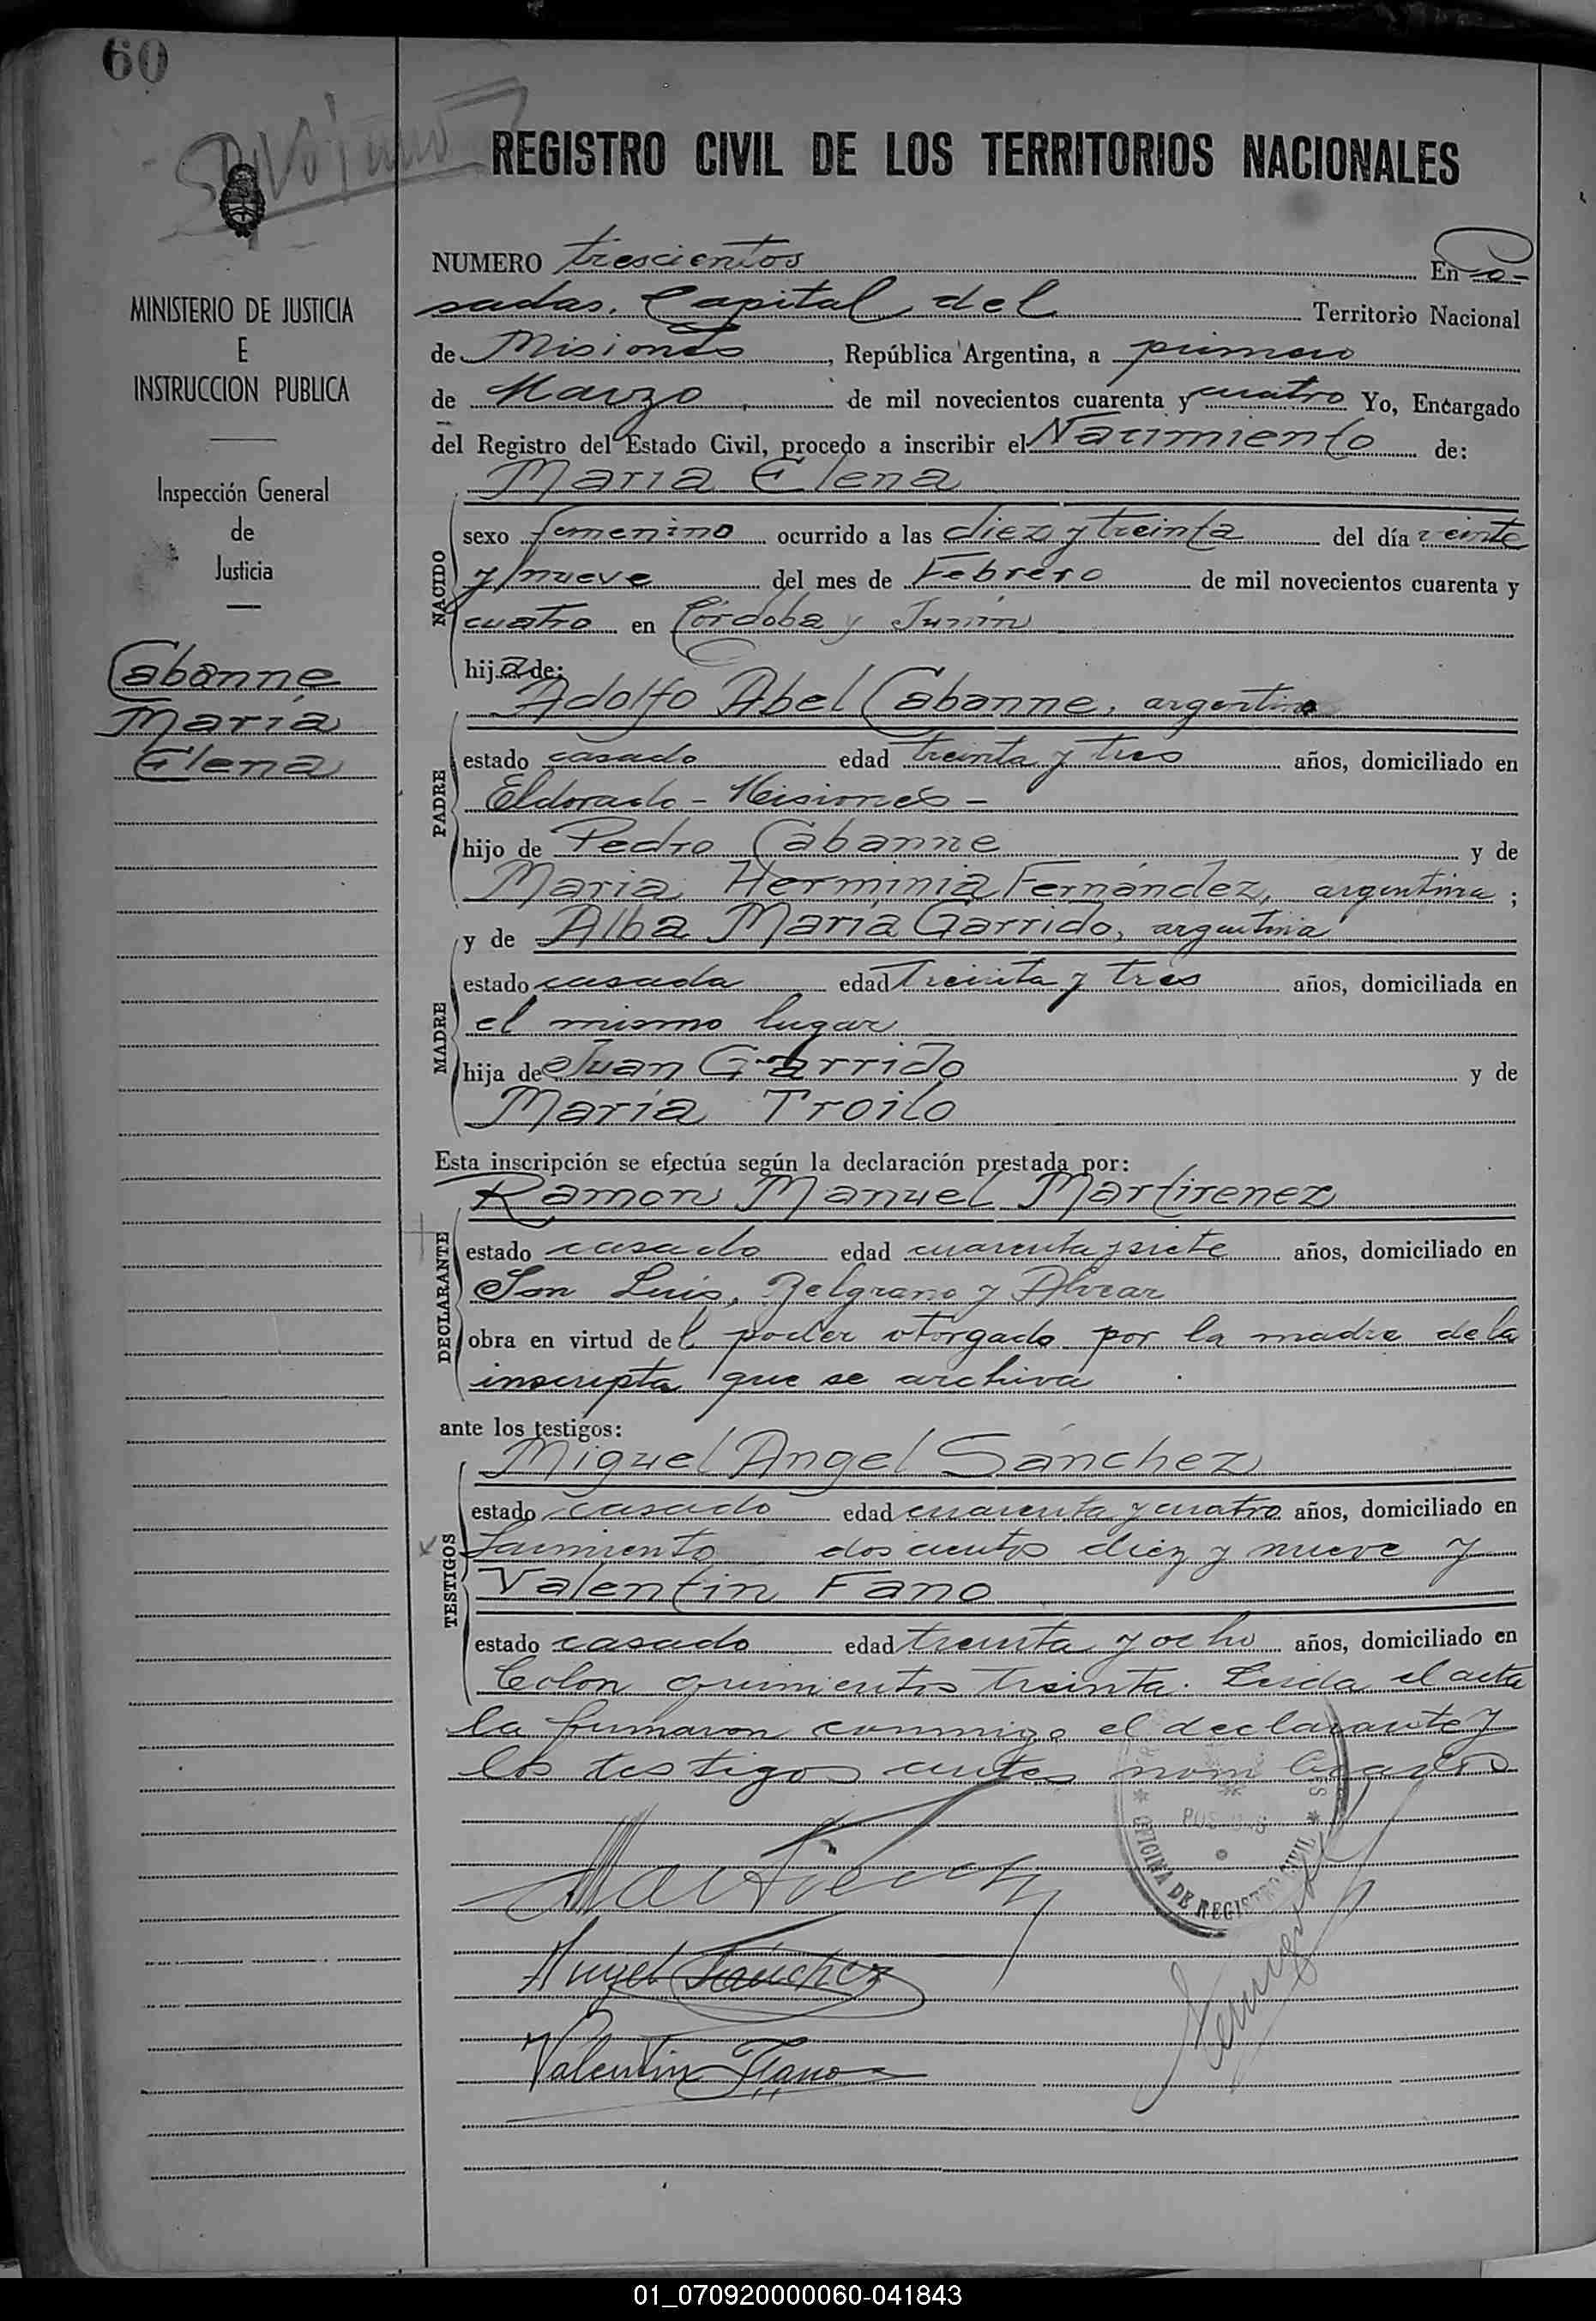 60
REGISTRO CIVIL DE LOS TERRITORIOS NACIONALES
MINISTERIO DE JUSTICIA
E
INSTRUCCION PUBLICA
Inspección General
de
Justicia
Cabanne
María
Elena
NUMERO trescientos En Po-
sadas. Capital del Territorio Nacional
de Misiones, República Argentina, a primero
de Marzo de mil novecientos cuarenta y cuatro Yo, Encargado
del Registro del Estado Civil, procedo a inscribir el Nacimiento de:
María Elena
NACIDO
sexo femenino ocurrido a las diez y treinta del día veinte
y nueve del mes de Febrero de mil novecientos cuarenta y
cuatro en Córdoba y Junín
hija de:
Adolfo Abel Cabanne, argentino
PADRE
estado casado edad treinta y tres años, domiciliado en
Eldorado - Misiones -
hijo de Pedro Cabanne y de
María Herminia Fernández, argentina;
y de Alba María Garrido, argentina
MADRE
estado casada edad treinta y tres años, domiciliada en
el mismo lugar
hija de Juan Garrido y de
María Troilo
Esta inscripción se efectúa según la declaración prestada por:
Ramón Manuel Martirenez
DECLARANTE
estado casado edad cuarenta y siete años, domiciliado en
San Luis, Belgrano y Alvear
obra en virtud del poder otorgado por la madre de la
inscripta que se archiva
ante los testigos:
Miguel Angel Sánchez
TESTIGOS
estado casado edad cuarenta y cuatro años, domiciliado en
Sarmiento doscientos diez y nueve y
Valentín Fano
estado casado edad treinta y ocho años, domiciliado en
Colón quinientos treinta. Leida el acta
la firmaron conmigo el declarante y
los testigos antes nombrados
POSADAS
OFICINA DE REGISTRO CIVIL
Angel Sánchez
Valentin Fano
01_070920000060-041843